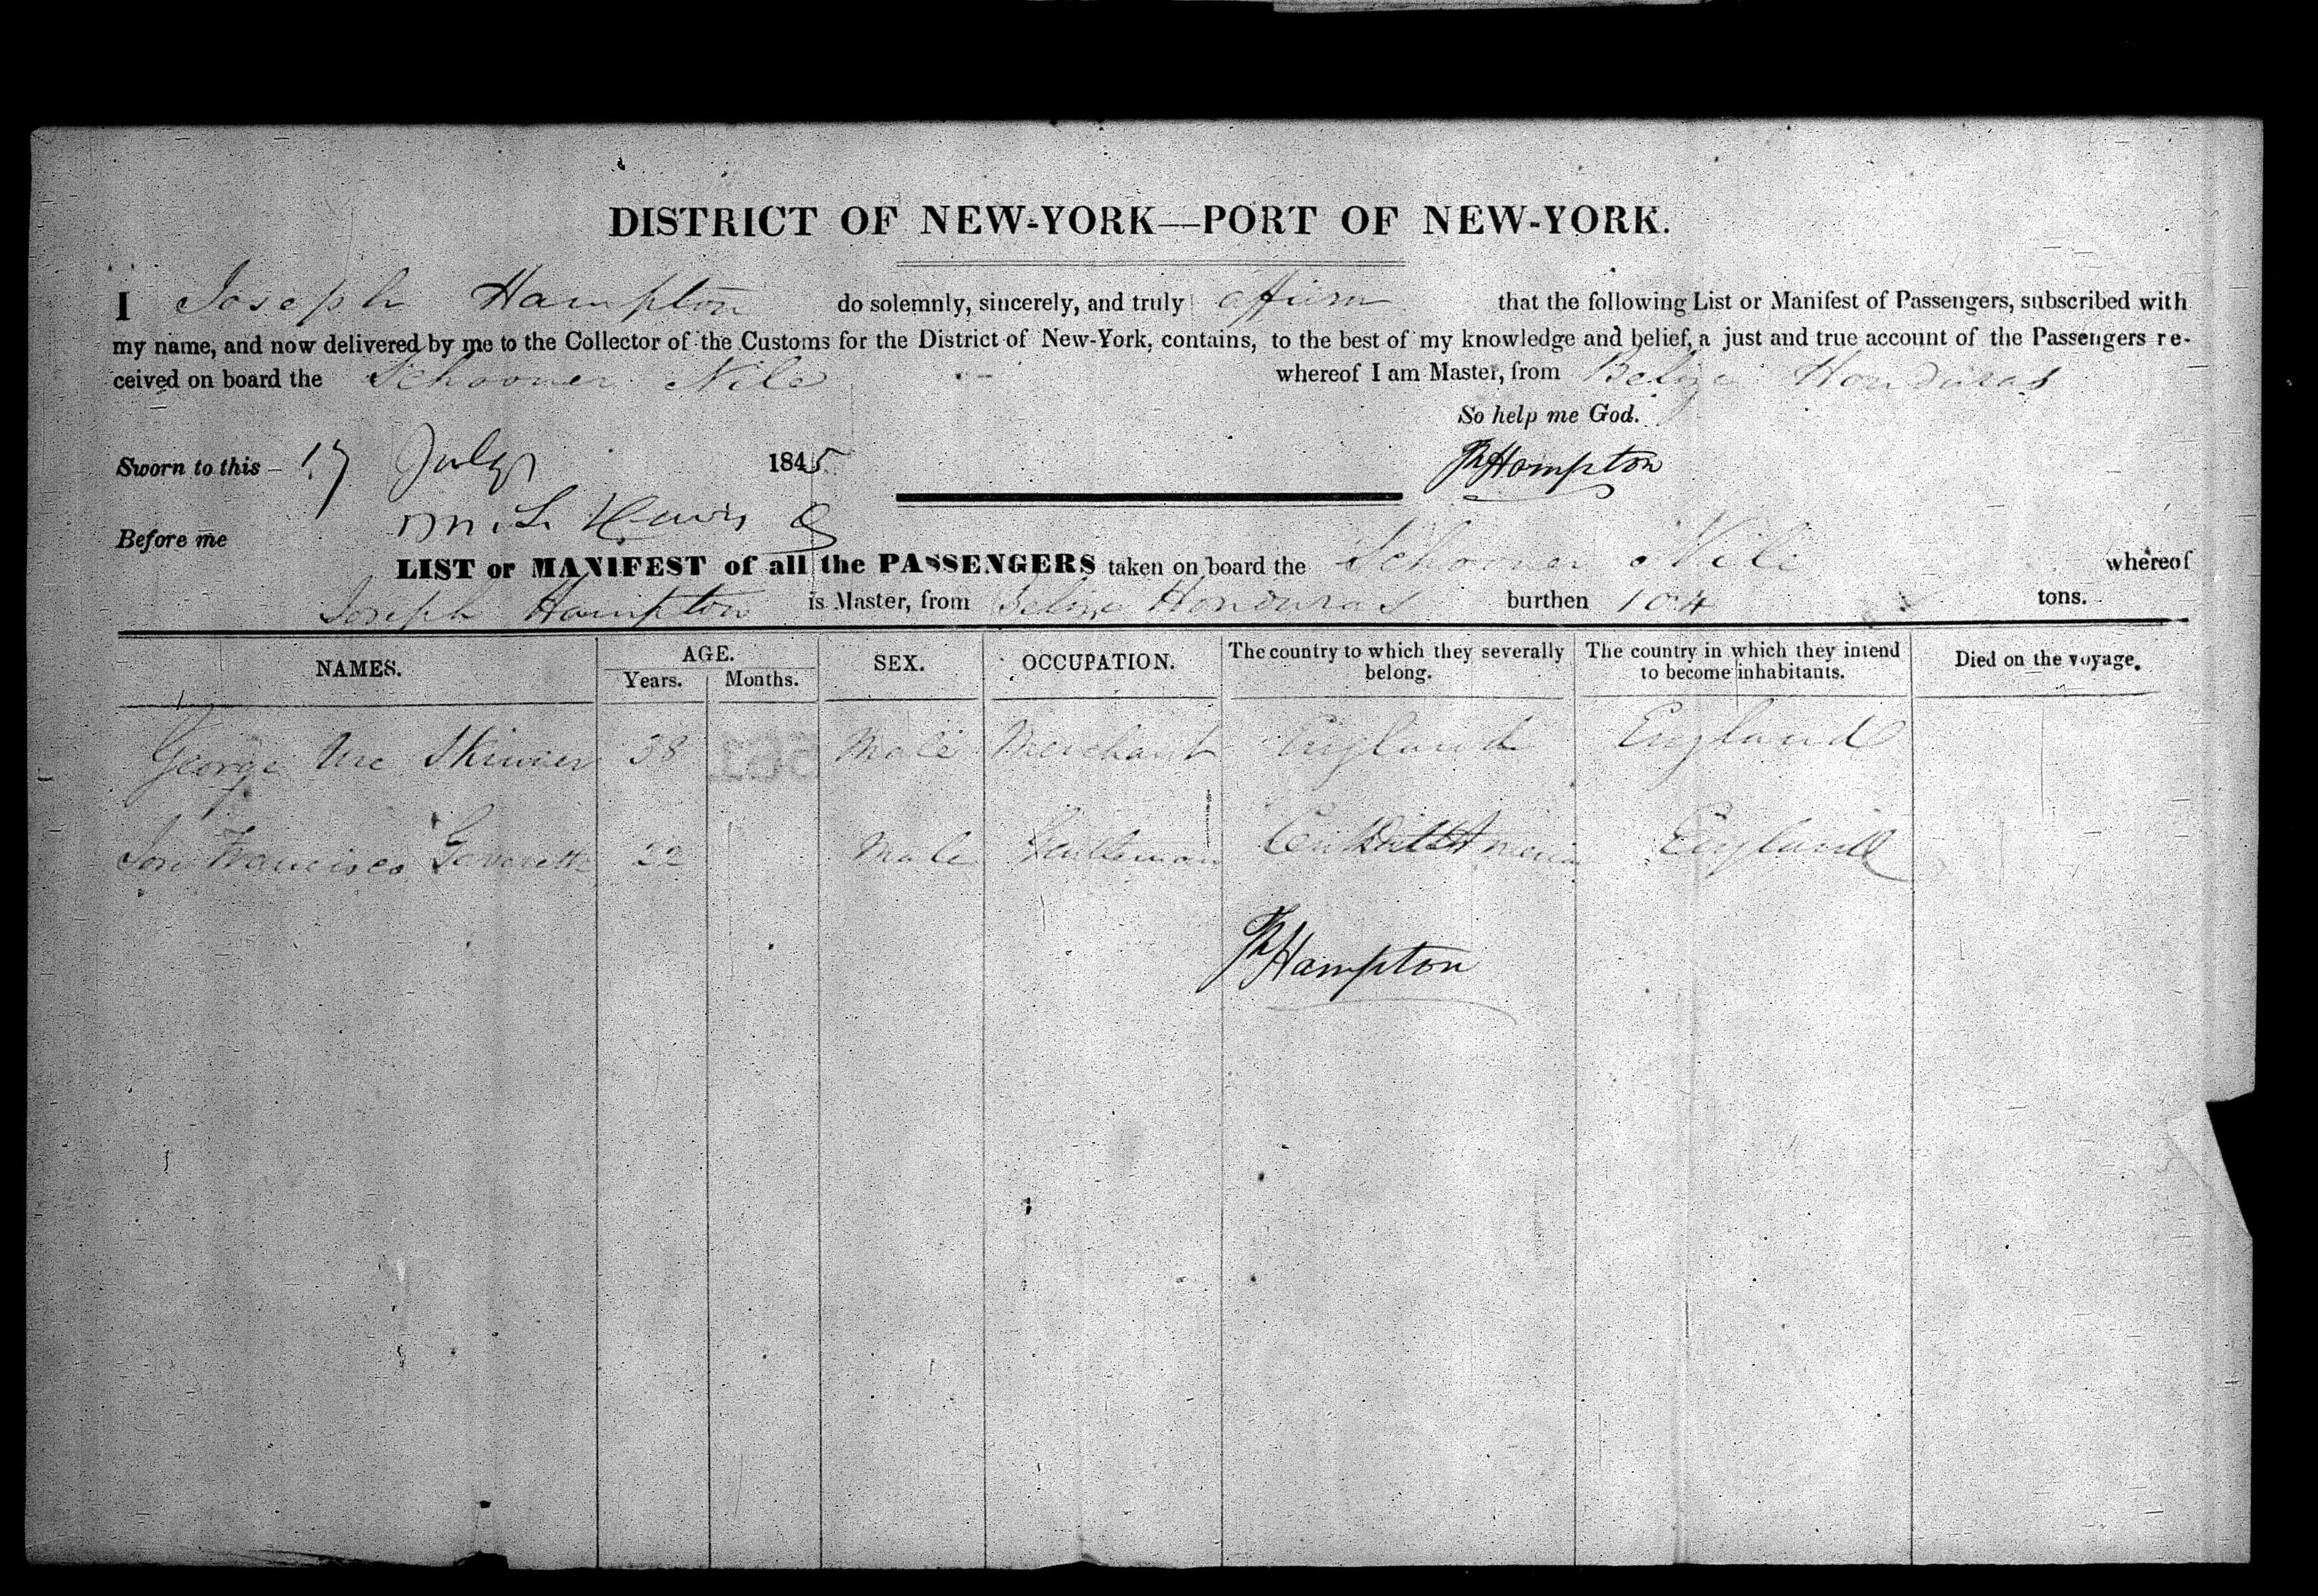 DISTRICT OF NEW-YORK—PORT OF NEW-YORK.
I Joseph Hampton do solemnly, sincerely, and truly affirm that the following List or Manifest of Passengers, subscribed with
my name, and now delivered by me to the Collector of the Customs for the District of New-York, contains, to the best of my knowledge and belief, a just and true account of the Passengers re-
ceived on board the Schooner Nile whereof I am Master, from Belize Honduras
So help me God.
Sworn to this 17 July 1845 Hampton
Before me
LIST or MANIFEST of all the PASSENGERS taken on board the Schooner Nile whereof
Joseph Hampton is Master, from Belize Honduras burthen 104 tons.
NAMES. AGE. Years. Months. SEX. OCCUPATION. The country to which they severally belong. The country in which they intend to become inhabitants. Died on the voyage.
George Ure Skinner 38 Male Merchant England England
Francisco 22 Male Gentleman America England
Hampton